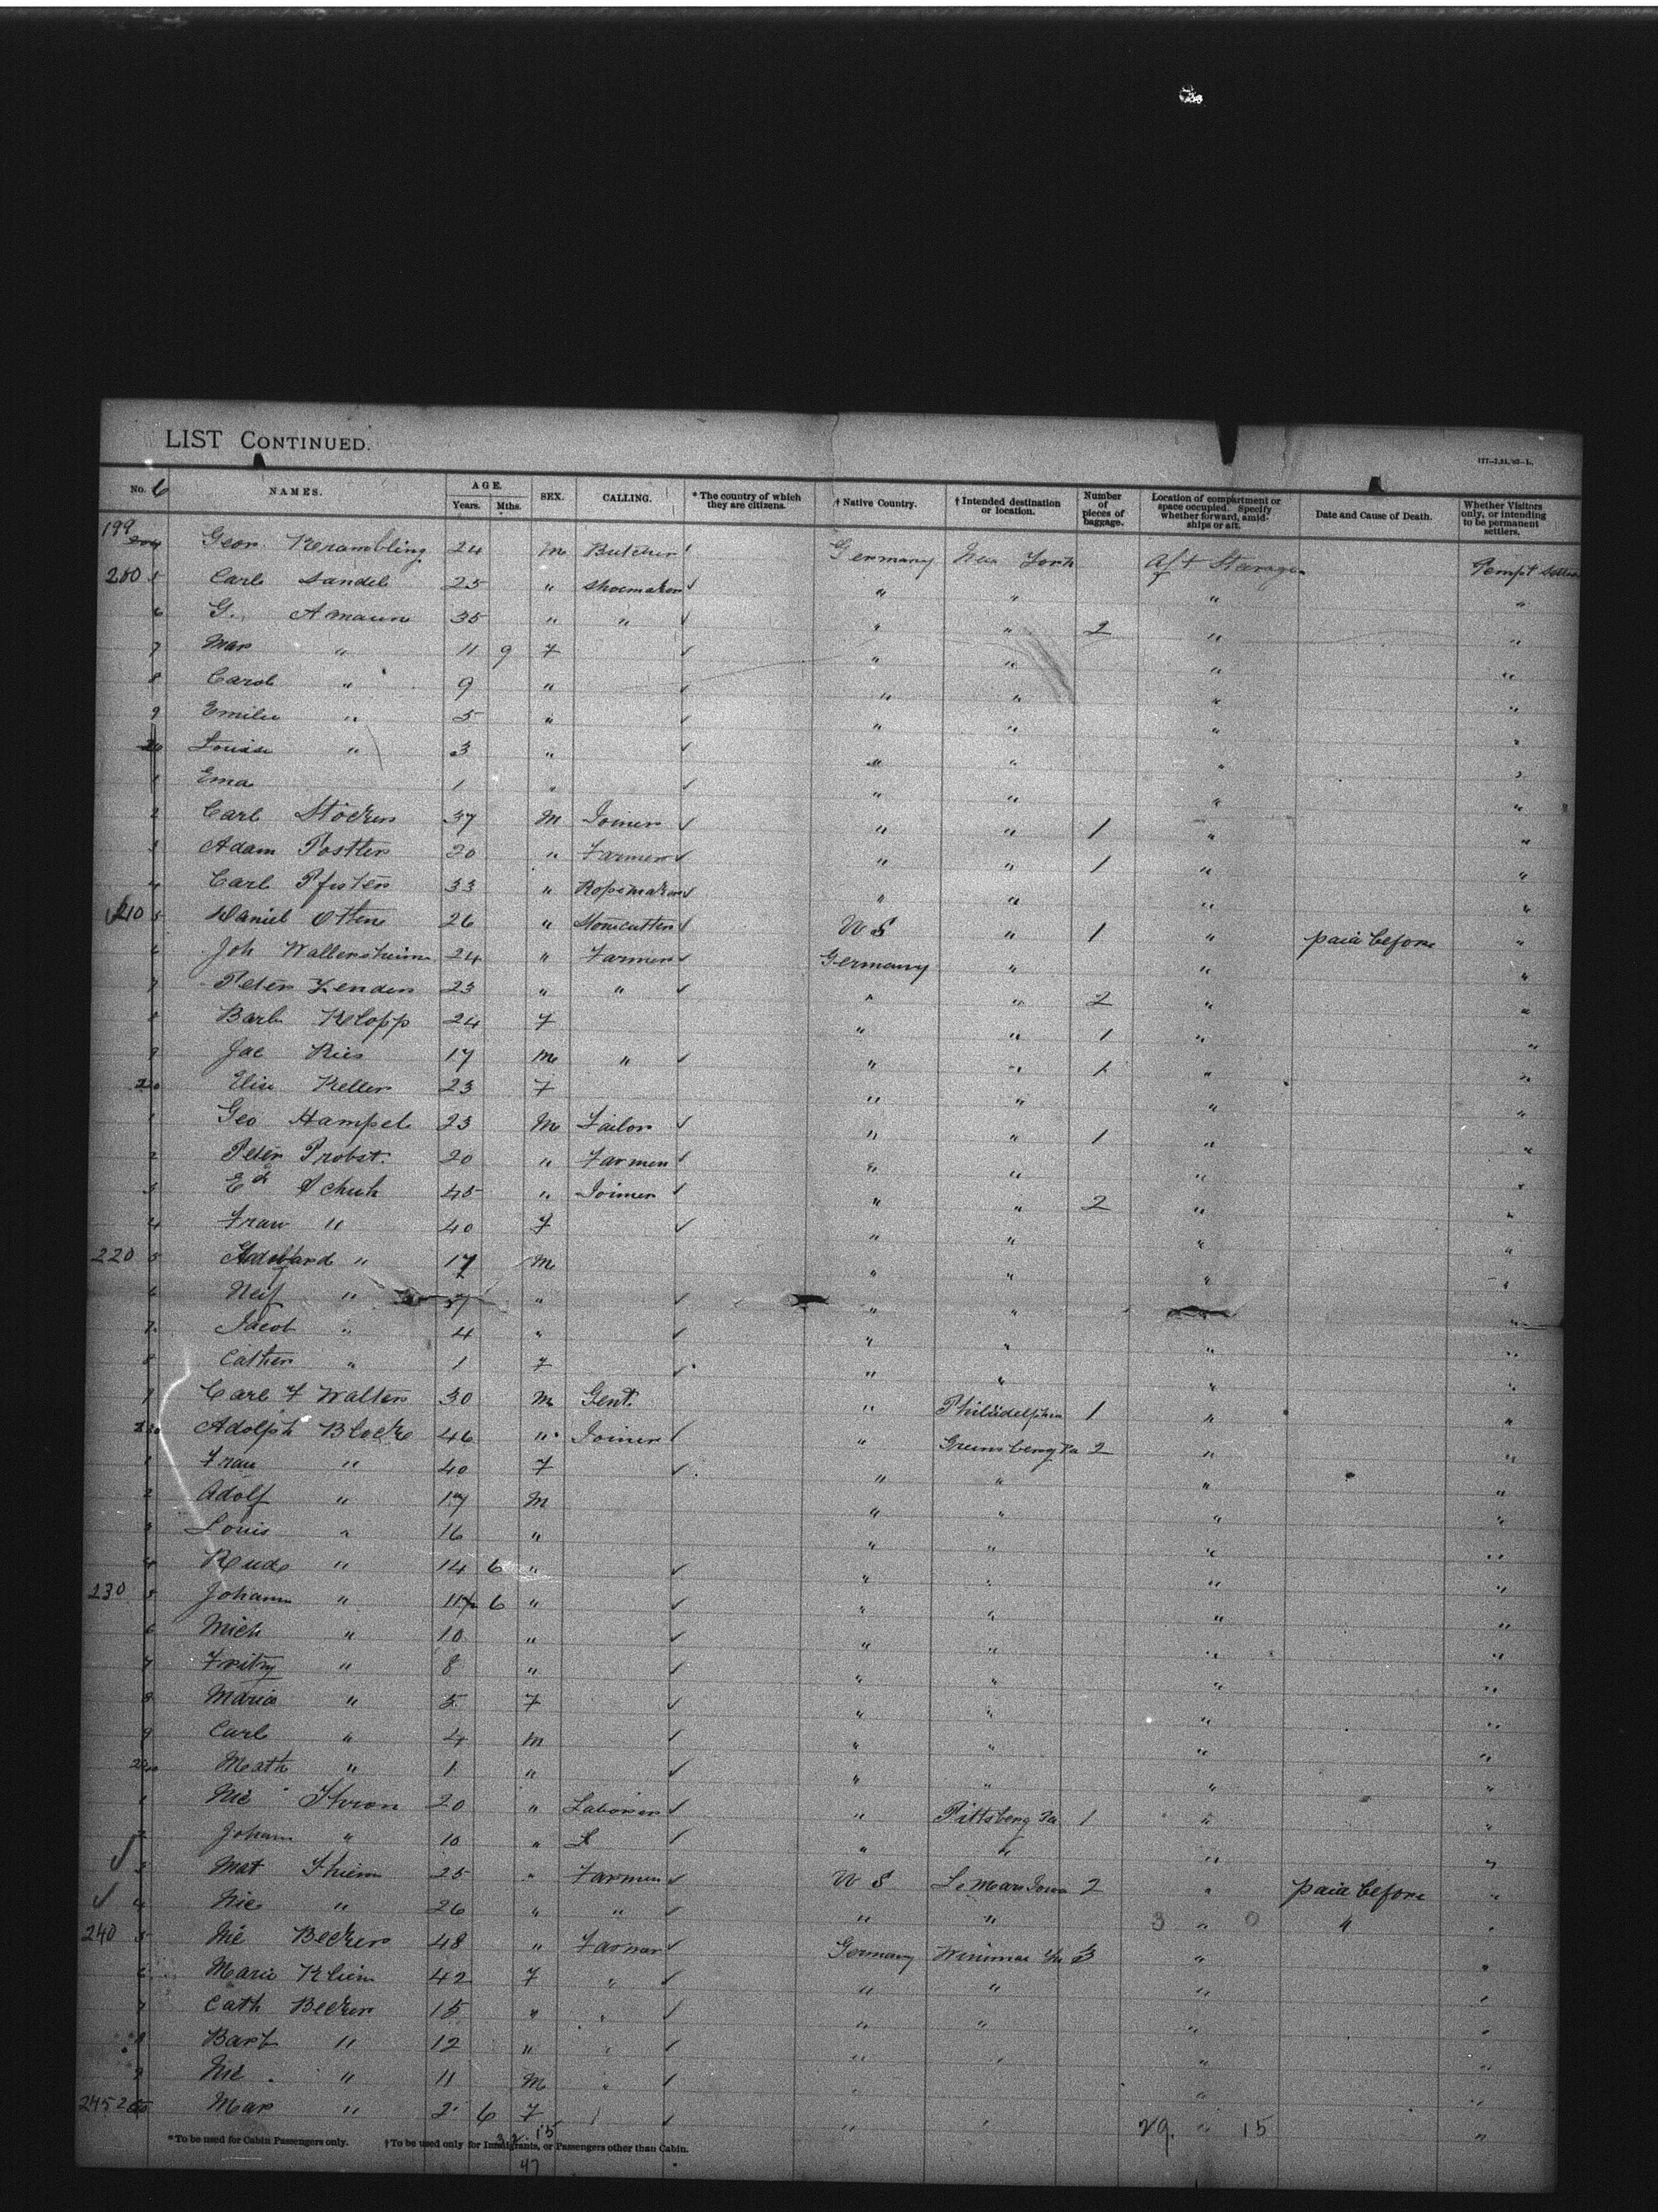 LIST CONTINUED.
177-7,11,'93-L.
No. 6 NAMES. AGE. Years. Mths. SEX. CALLING. * The country of which they are citizens. † Native Country. † Intended destination or location. Number of pieces of baggage. Location of compartment or space occupied. Specify whether forward, amidships or aft. Date and Cause of Death. Whether Visitors only, or intending to be permanent settlers.
199 204 Geor. 24 M Butcher Germany New York Aft Steerage
200 5 Carl Sandel 25 " Shoemaker " " " "
6 G. Amann 35 " " " " 2 " "
7 Mar " 11 9 F " " " "
8 Carol " 9 " " " " "
9 Emilie " 5 " " " " "
Louise " 3 " " " " "
1 Ema 1 " " " " "
2 Carl Stöcker 37 M Joiner " " 1 " "
3 Adam Postler 20 " Farmer " " 1 " "
4 Carl Pfister 33 " Ropemaker " " " "
210 5 Daniel Otten 26 " Stonecutter U S " 1 " paid before "
6 Joh Wallersheim 24 " Farmer Germany " " "
7 Peter Zender 23 " " " " 2 " "
8 Barb Klopp 24 F " " 1 " "
9 Jac Ries 17 M " " " 1 " "
Elise Keller 23 F " " " "
1 Geo Hampel 23 M Tailor " " 1 " "
2 Peter Probst. 20 " Farmer " " " "
3 Ed Schuh 45 " Joiner " " 2 " "
4 Frau " 40 F " " " "
220 5 " 17 M " " " "
6 " " " " " "
7 Jacob " 4 " " " " "
8 Cather " 1 F " " " "
9 Carl F Walter 30 M Gent. " Philadelphia 1 " "
Adolph Blocke 46 " Joiner " Greensberg Pa 2 " "
1 Frau " 40 F " " " "
2 Adolf " 17 M " " " "
3 Louis " 16 " " " " "
4 Rud " 14 6 " " " " "
230 5 Johann " 11 6 " " " " "
6 Mich " 10 " " " " "
7 Fritz " 8 " " " " "
8 Maria " 5 F " " " "
9 Carl " 4 M " " " "
Math " 1 " " " " "
1 Nic Thron 20 " Laborer " Pittsberg Pa 1 " "
2 Johann " 10 " " " " "
3 Mat Thiem 25 " Farmer U S Le Mars Iowa 2 " paid before "
4 Nic " 26 " " " " 3 " 0 " "
240 5 Nic Becker 48 " Farmer Germany 3 " "
6 Marie Klien 42 F " " " " "
7 Cath Becker 15 " " " " " "
8 Barb " 12 " " " " " "
9 Nic " 11 M " " " " "
245 Mar " 2 6 F " " 29. " 15 "
* To be used for Cabin Passengers only. † To be used only for Immigrants, or Passengers other than Cabin.
32 15
47